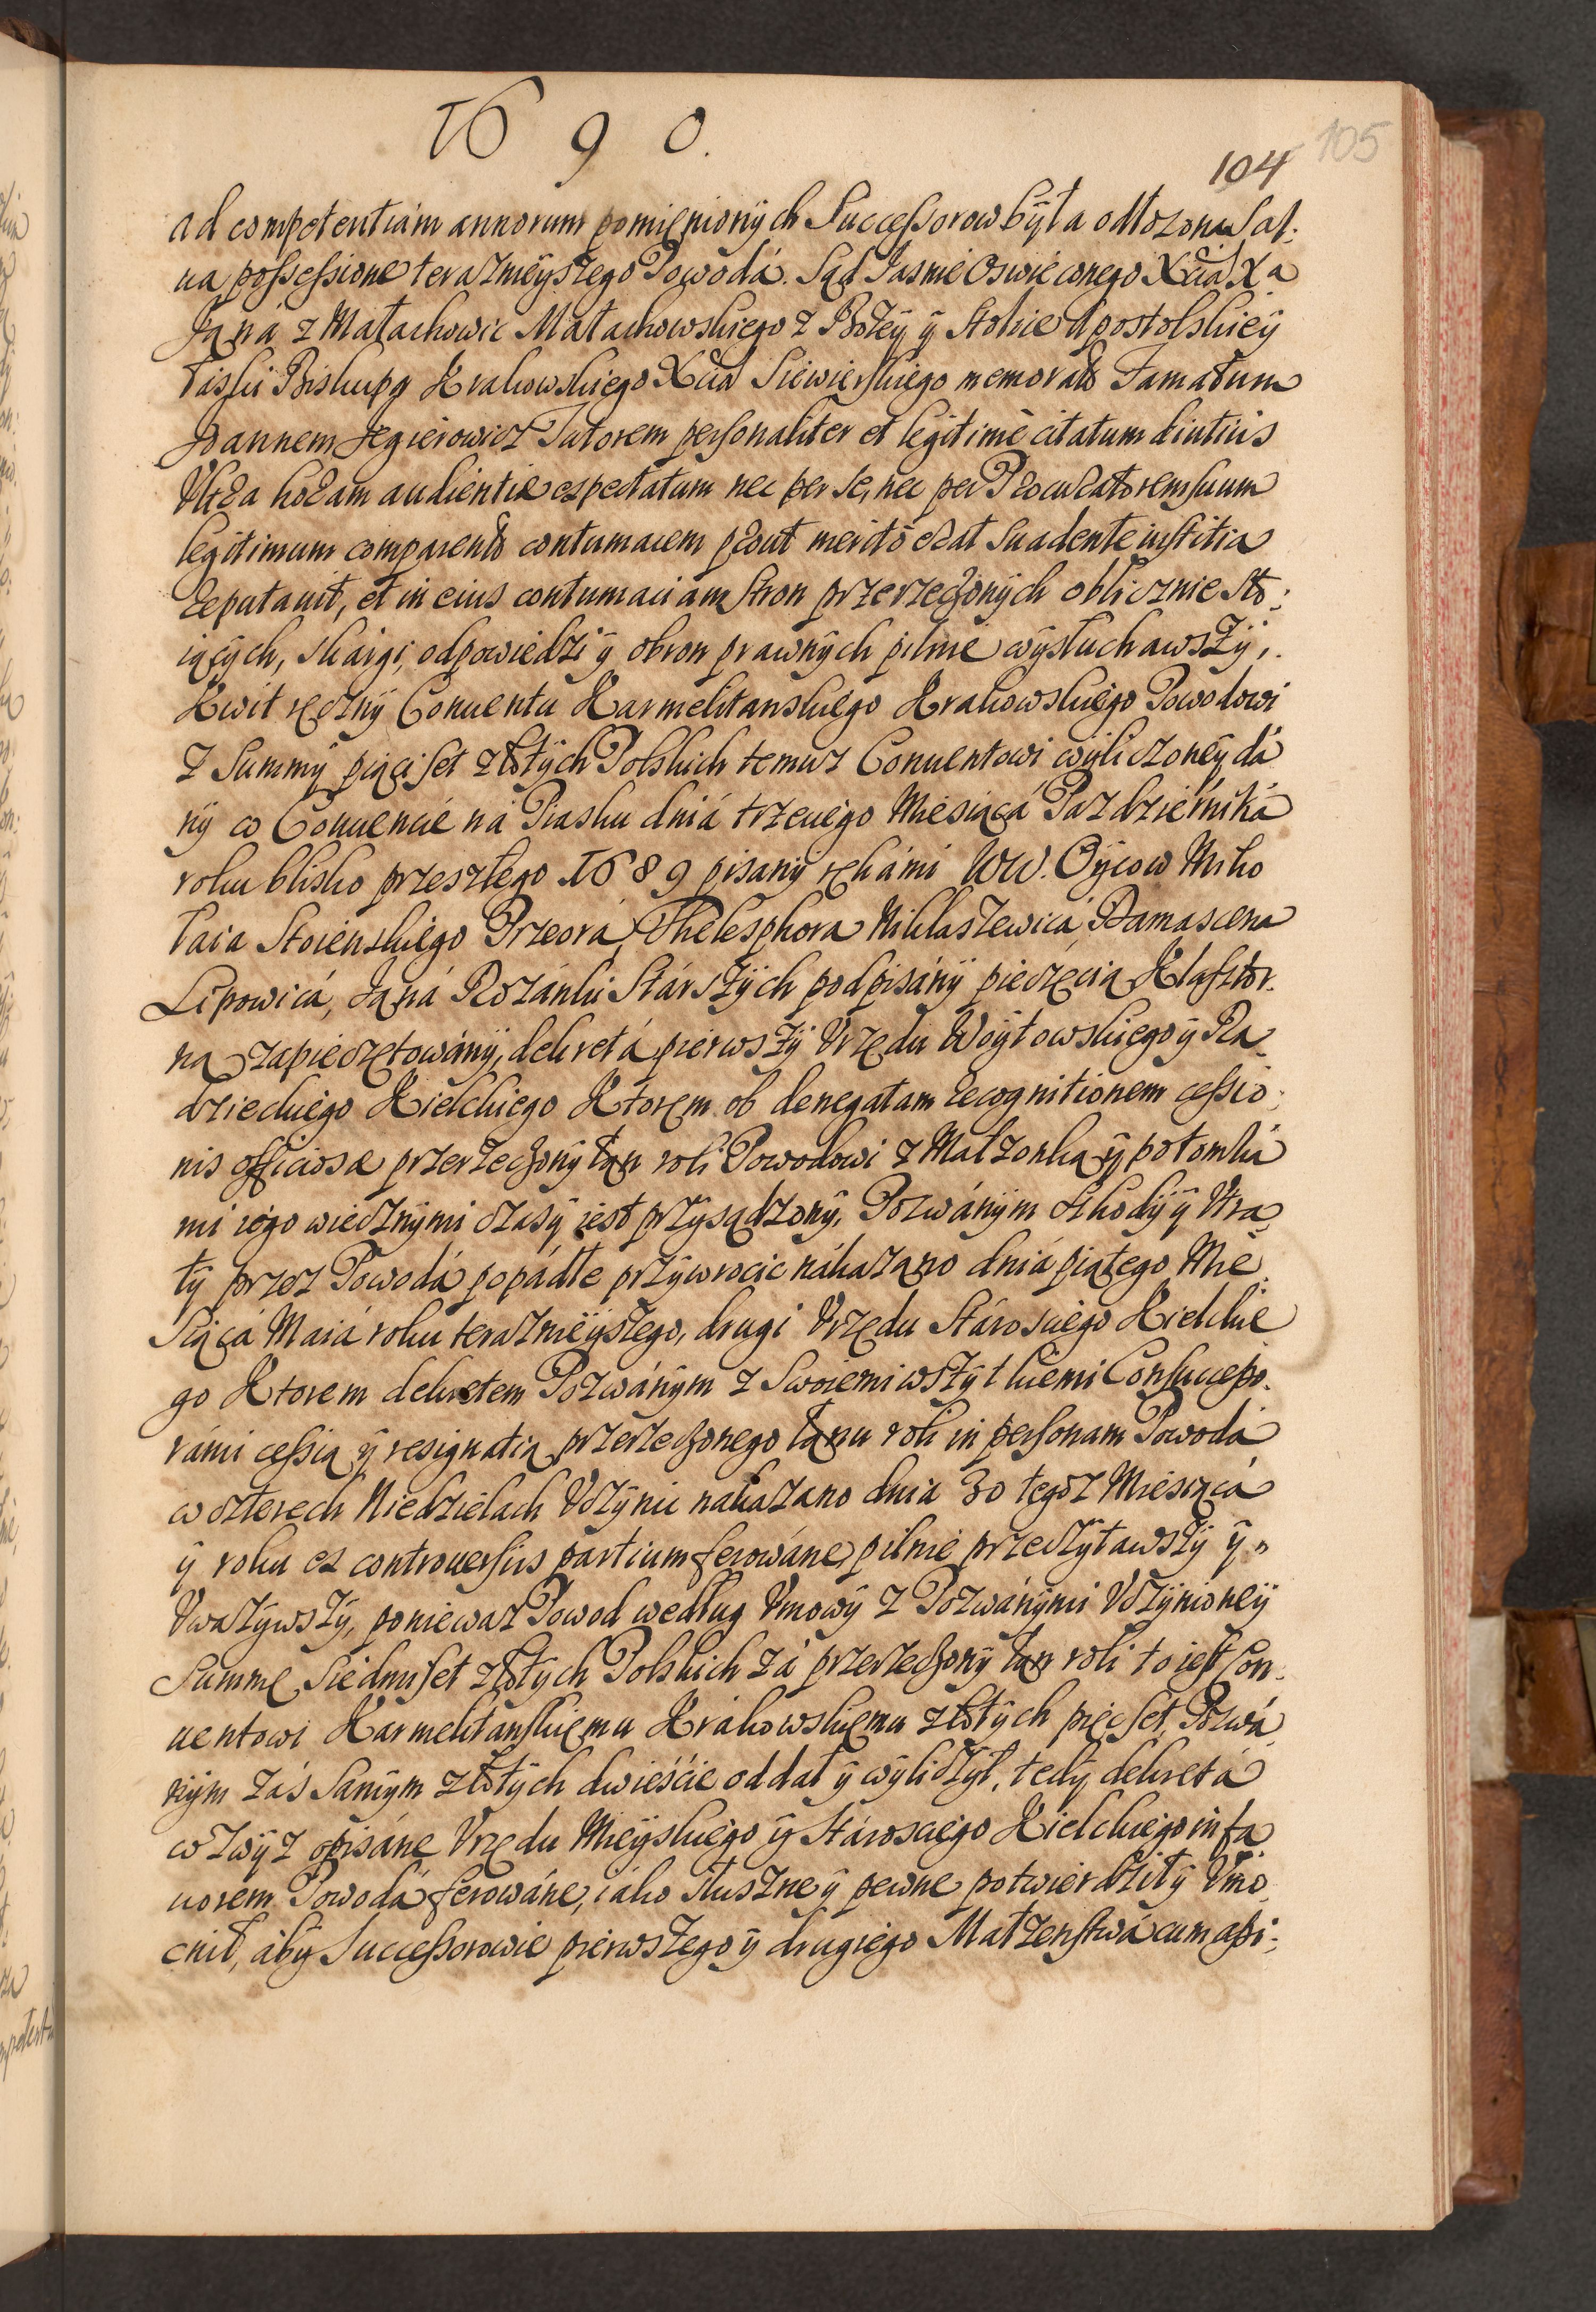 1690.
104 105
ad competentiam annorum pomięnionych Successorow była odłozona Sal:
ua possessione teraznieyszego Powodá. Sąd Jasnie Oswieconego Xcia Xa
Janá z Małachowic Małachowskiego z Bozey y Stolice Apostolskiey
łaski Biskupa Krakowskiego Xcia Siewierskiego memorato Famatum
Joannem Jegierowicz Tutorem personaliter et legitimè citatum diutius
Vltra horam audientiæ expectatum nec per se, nec per Procuratorem suum
legitimum comparentd contumacem prout meritò erat suadente iustitia
reputauit, et in eius contumaciam Stron przerzeczonych oblicznie sto:
iących, skargi, odpowiedzi y obron prawnych pilnie wysłuchawszy,
Kwit ręczny Conuentu Karmelitanskiego Krakowskiego Powodowi
z Summy pięciset złotych Polskich temuz Conuentowi wyliczoney dá
ny w Conuencie ná Piasku dniá trzeciego Miesiącá Pazdzierniká
roku blisko przeszłego 1689 pisany rękámi WW. Oycow Miko
łaia Stoienskiego Przeorá, Thelesphora Miklaszewicá, Damascena
Lipowicá, Janá Rozánki Stárszych podpisány pieczęcią Klasztor.
na zapieczętowány, dekretá pierwszy Vrzędu Woytowskiego y Ra
dzieckiego Kielckiego Ktorem ob denegatam recognitionem cessio:
nis officiosæ przerzeczony łan roli Powodowi z Małzonką y potomká
mi iego wiecznymi czasy iest przysądzony, Pozwánym szkody y Vtra
ty przez Powodá popádłe przywrocic nákazano dniá piątego Mie
siącá Maiá roku teraznieyszego, drugi Vrzędu Stárosciego Kielckie
go Ktorem dekretem Pozwánym z swoiemi wszytkiemi Consuccesso.
rámi cessią y resignatią przerzeczonego łanu roli in personam Powodá
w czterech Niedzielach Vczynic nakazano dnia 30 tegoz Miesiącá
y roku ex controuersiis partium ferowáne, pilnie przeczytawszy y
Vwazywszy, poniewaz Powod według Vmowy z Pozwánymi Vczynioney
Summę siedmset złotych Polskich zá przerzeczony łan roli to iest Con.
uentowi Karmelitanskiemu Krákowskiemu złotych pięcset, Pozwá
nym zás samym złotych dwieście oddał y wyliczył, tedy dekretá
wzwyz opisáne Vrzędu Mieyskiego y Stárosciego Kielckiego in fa
uorem Powodá ferowáne, iáko słuszne y pewne potwierdził y Vmo
cnił, áby Successorowie pierwszego y drugiego Małzenstwá cum assi: